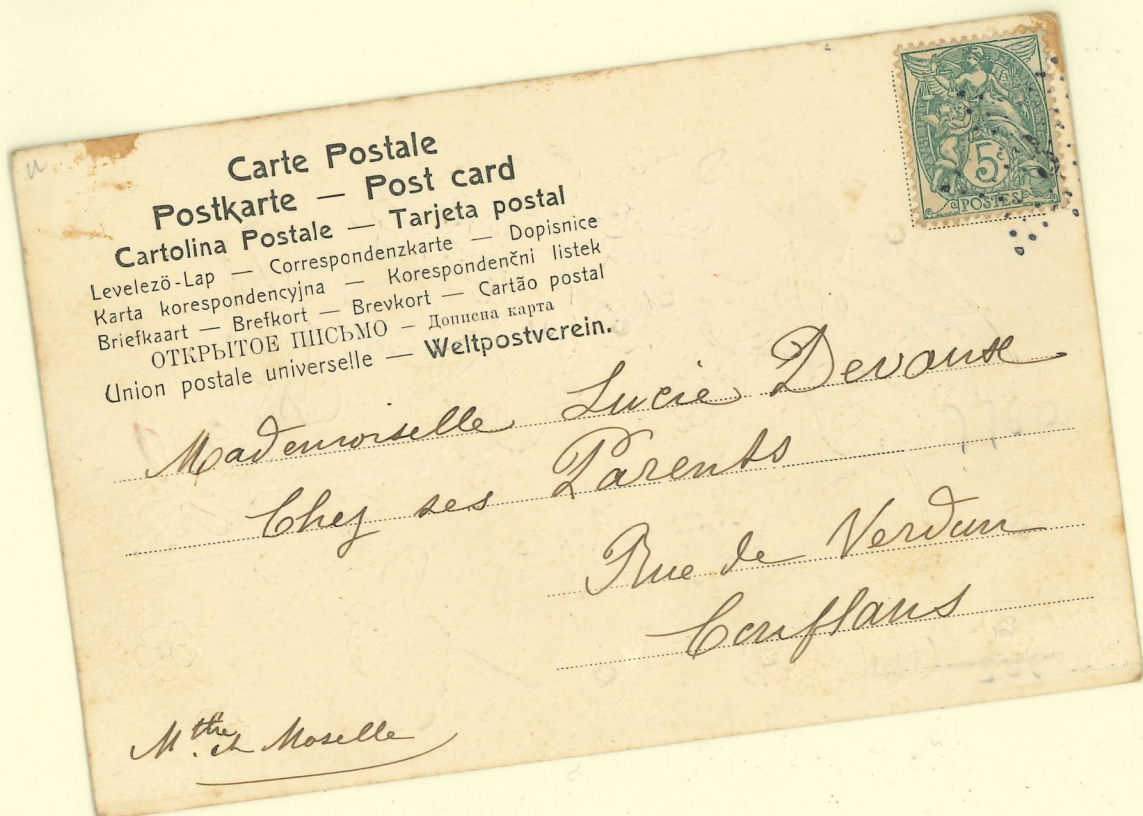 Carte Postale
Postkarte — Post card
Cartolina Postale — Tarjeta postal
Levelezö-Lap — Correspondenzkarte — Dopisnice
Karta korespondencyjna — Korespondenčni listek
Briefkaart — Brefkort — Brevkort — Cartão postal
ОТКРЫТОЕ ПИСЬМО — Доппсна карта
Union postale universelle — Weltpostverein.
5c
POSTES
Mademoiselle Lucie Devause
Chez ses Parents
Rue de Verdun
Conflans
Mthe et Moselle